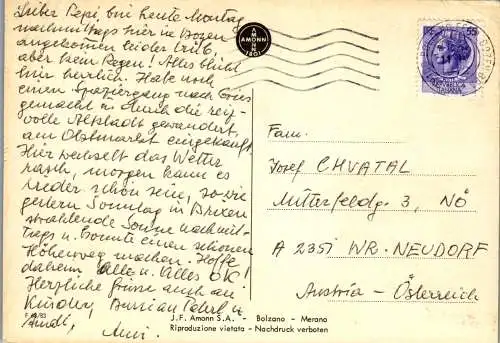 Lieber Pepi, bin heute Montag
nachmittags hier in Bozen
angekommen leider trüb,
aber kein Regen! Alles blüht
hier herrlich. Habe noch
einen Spaziergang nach Gries
gemacht u. durch die reiz-
volle Altstadt gewandert,
am Obstmarkt eingekauft.
Hier wechselt das Wetter
rasch, morgen kann es
wieder schön sein, so wie
gestern Sonntag in Brixen
strahlende Sonne nachmit-
tags u. konnte einen schönen
Höhenweg machen. Hoffe!
daheim alle u. Alles OK!
Herzliche Grüsse auch an
Kinder,
F
AMONN
1801
55
Fam.
Josef CHVATAL
Mitterfeldg. 3, NÖ
A 2351 WR. NEUDORF
Austria - Österreich
J. F. Amonn S.A. - Bolzano - Merano
Riproduzione vietata - Nachdruck verboten